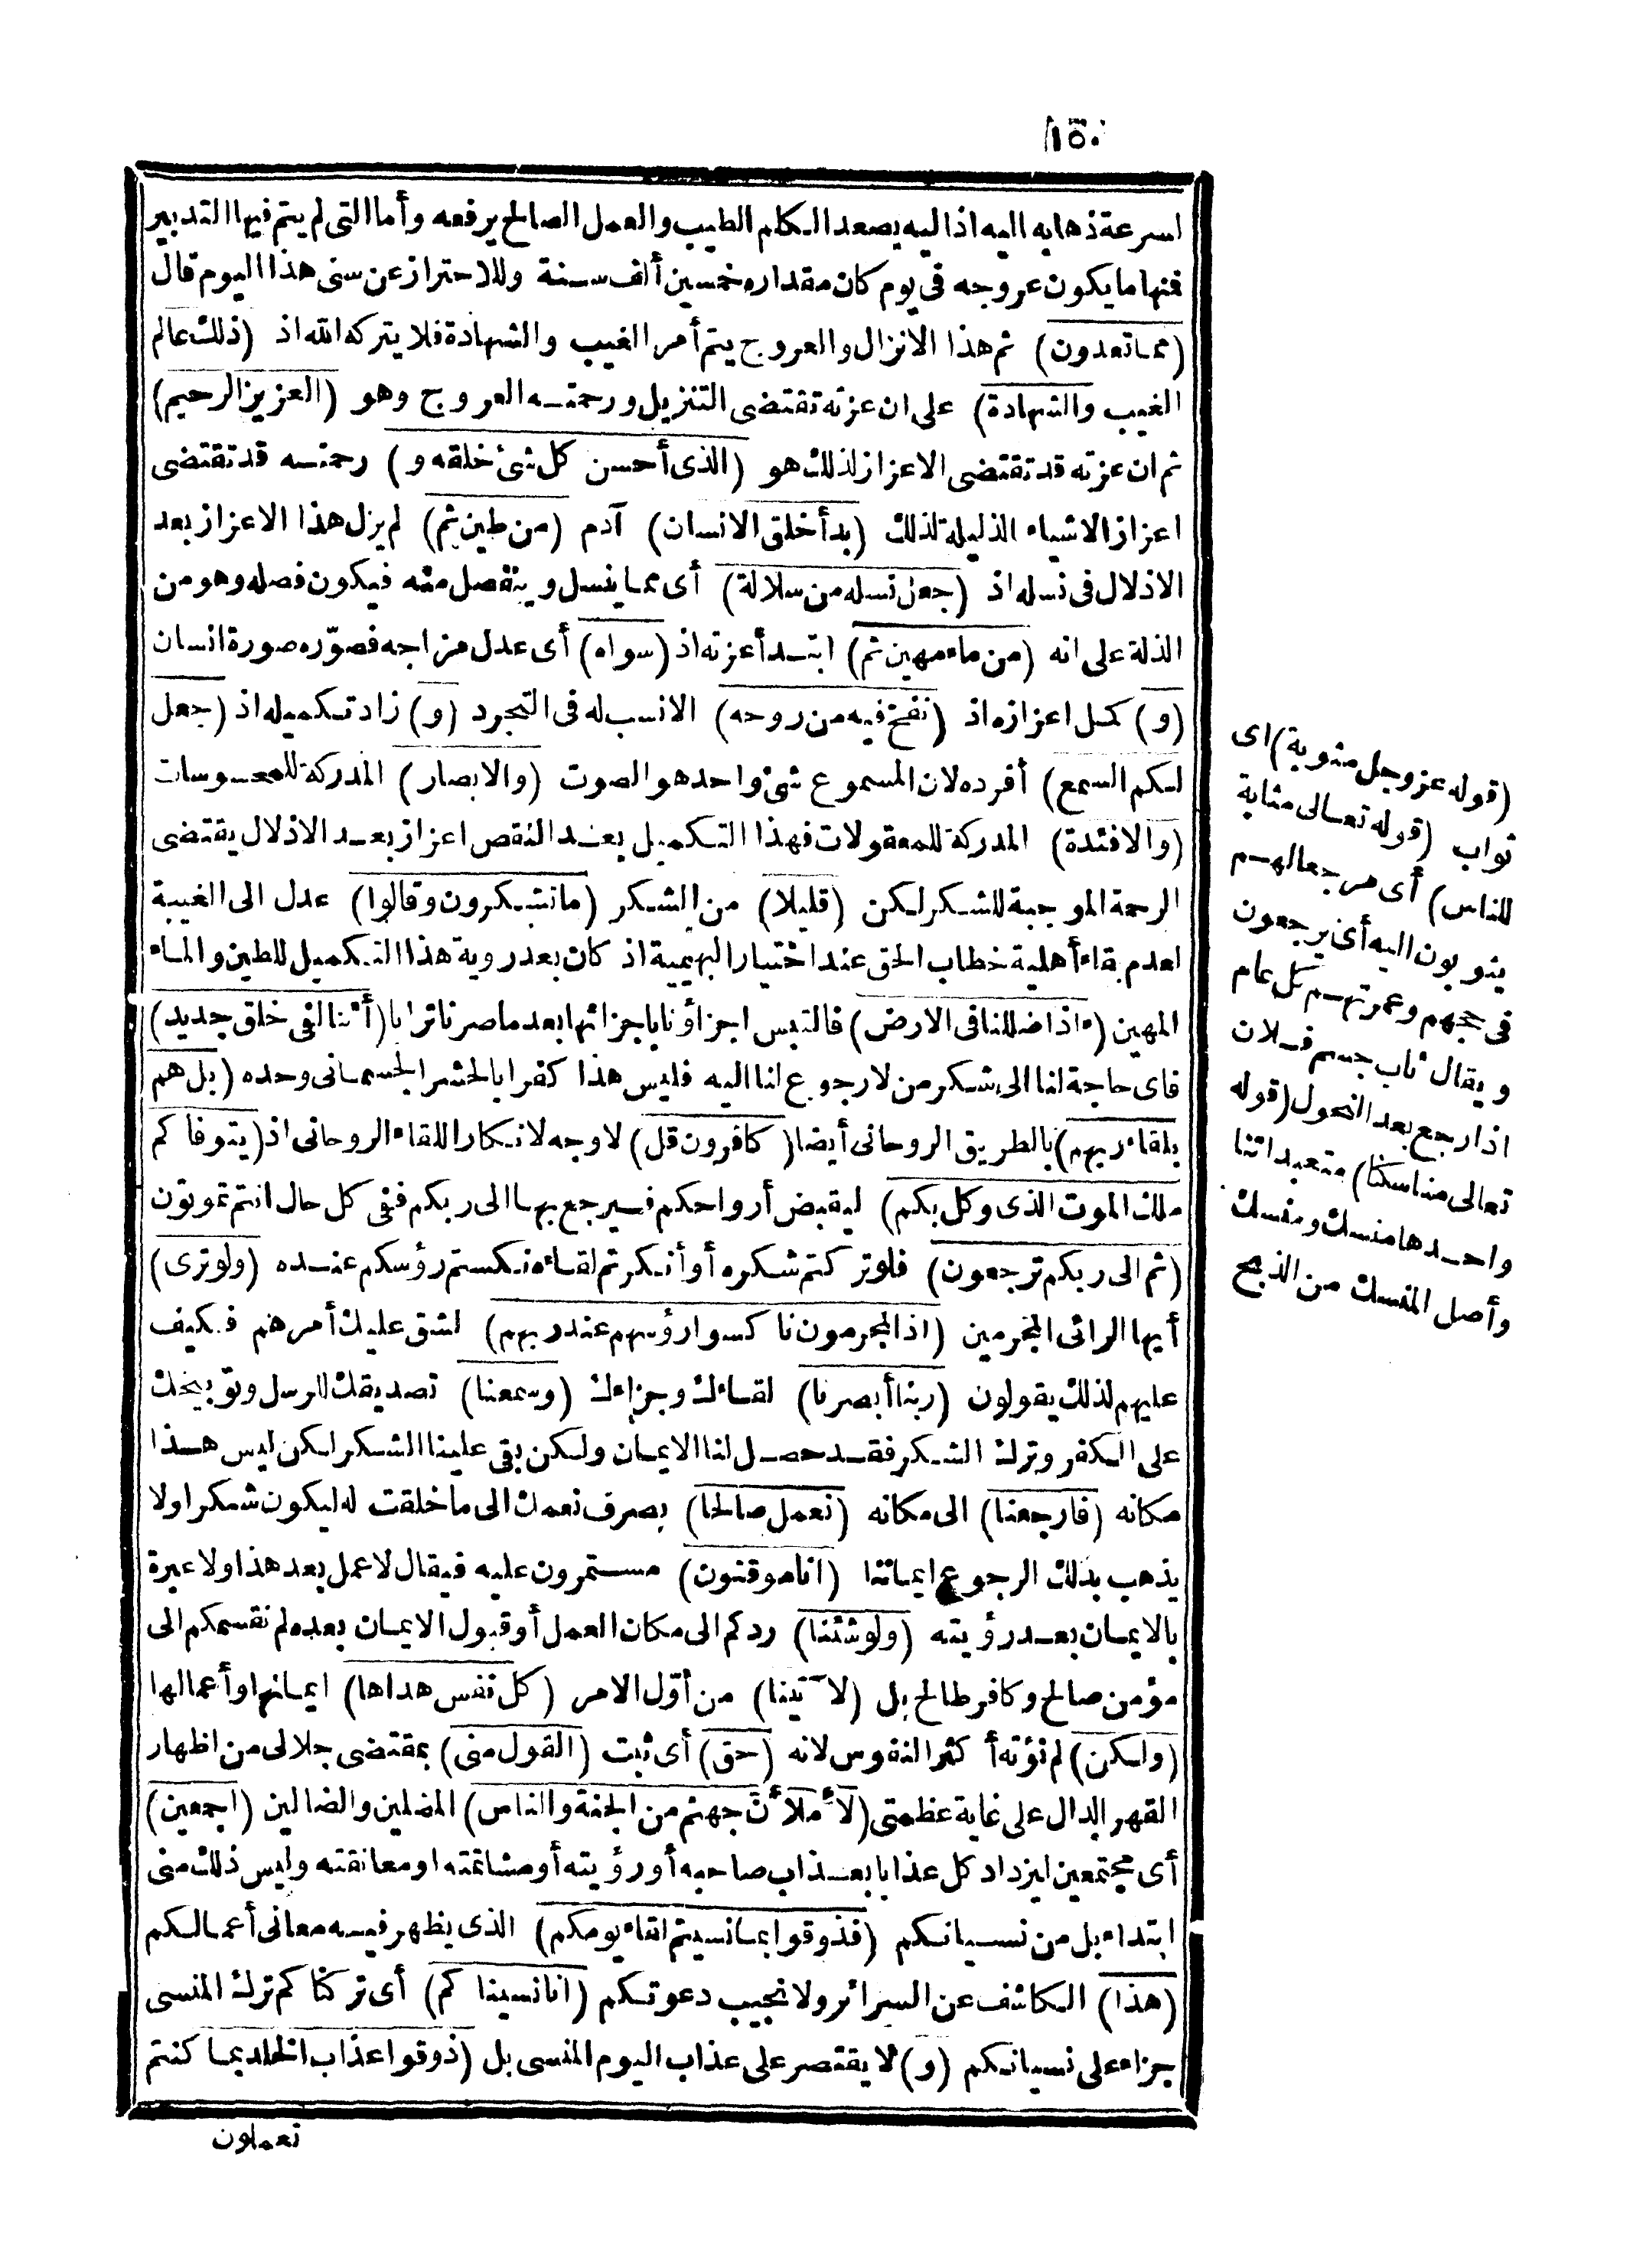 ١٥٠
لسرعة ذهابه اليه اذ اليه يصعد الكلم الطيب والعمل الصالح يرفعه وأما التى لم يتم فيها التدبير
فنها ما يكون عروجه فى يوم كان مقداره خمسين ألف سنة وللاحتراز عن سنى هذا اليوم قال
(مما تعدون) ثم هذا الانزال والعروج يتم أمر الغيب والشهادة فلا يتركه الله اذ (ذلك عالم
الغيب والشهادة) على ان عزته تقتضى التنزيل ورحمته العروج وهو (العزيز الرحيم)
ثم ان عزته قد تقتضى الاعزاز لذلك هو (الذى أحسن كل شئ خلقه و) رحمته قد تقتضى
اعزاز الاشياء الذليلة لذلك (بدأ خلق الانسان) آدم (من طين ثم) لم يزل هذا الاعزاز بعد
الاذلال فى نسله اذ (جعل نسله من سلالة) أى مما ينسل وينفصل منه فيكون فصله وهو من
الذلة على انه (من ماء مهين ثم) ابتدأ عزته اذ (سواه) أى عدل مزاجه فصوّره صورة انسان
(و) كمل اعزازه اذ (نفخ فيه من روحه) الانسب له فى التجرد (و) زاد تكميله اذ (جعل
لكم السمع) أفرده لان المسموع شئ واحد هو الصوت (والابصار) المدركة للمحسوسات
(والافئدة) المدركة للمعقولات فهذا التكميل بعد النقص اعزاز بعد الاذلال يقتضى
الرحمة الموجبة للشكر لكن (قليلا) من الشكر (ما تشكرون وقالوا) عدل الى الغيبة
لعدم بقاء أهلية خطاب الحق عند اختيار البهيمية اذ كان بعد روية هذا التكميل للطين والماء
المهين (ءاذا ضللنا فى الارض) فالتبس اجزاؤنا باجزائها بعد ما صرنا ترابا (أئنا لفى خلق جديد)
فاى حاجة لنا الى شكر من لا رجوع لنا اليه فليس هذا كفرا بالحشر الجسمانى وحده (بل هم
بلقاء ربهم) بالطريق الروحانى أيضا (كافرون قل) لا وجه لانكار اللقاء الروحانى اذ (يتوفاكم
ملك الموت الذى وكل بكم) ليقبض أرواحكم فيرجع بها الى ربكم ففى كل حال انتم تموتون
(ثم الى ربكم ترجعون) فلو تركتم شكره أو أنكرتم لقاءه نكستم رؤسكم عنده (ولو ترى)
أيها الرائى المجرمين (اذ المجرمون ناكسوا رؤسهم عند ربهم) لشق عليك أمرهم فكيف
عليهم لذلك يقولون (ربنا أبصرنا) لقاءك وجزاءك (وسمعنا) تصديقك للرسل وتوبيخك
على الكفر وترك الشكر فقد حصل لنا الايمان ولكن بقى علينا الشكر لكن ليس هذا
مكانه (فارجعنا) الى مكانه (نعمل صالحا) بصرف نعمك الى ما خلقت له ليكون شكرا ولا
يذهب بذلك الرجوع ايماننا (انا موقنون) مستمرون عليه فيقال لا عمل بعد هذا ولا عبرة
بالايمان بعد رؤيته (ولو شئنا) ردكم الى مكان العمل أو قبول الايمان بعده لم نقسمكم الى
مؤمن صالح وكافر طالح بل (لآتينا) من أوّل الامر (كل نفس هداها) ايمانها وأعمالها
(ولكن) لم نؤته أكثر النفوس لانه (حق) أى ثبت (القول منى) بمقتضى جلالى من اظهار
القهر الدال على غاية عظمتى (لأملأنّ جهنم من الجنة والناس) المضلين والضالين (اجمعين)
أى مجتمعين ليزداد كل عذابا بعذاب صاحبه أو رؤيته أو مشاتمته او معانقته وليس ذلك منى
ابتداء بل من نسيانكم (فذوقوا بما نسيتم لقاء يومكم) الذى يظهر فيه معانى أعمالكم
(هذا) الكاشف عن السرائر ولا نجيب دعوتكم (انا نسيناكم) أى تركناكم ترك المنسى
جزاء على نسيانكم (و) لا يقتصر على عذاب اليوم المنسى بل (ذوقوا عذاب الخلد بما كنتم
تعملون
(قوله عز وجل مثوبة) اى
ثواب (قوله تعالى مثابة
للناس) أى مرجعا لهم
يثوبون اليه أى يرجعون
فى حجهم وعمرتهم كل عام
ويقال ثاب جسم فلان
اذا رجع بعد النحول (قوله
تعالى مناسكنا) متعبداتنا
واحدها منسك ومنسك
وأصل المنسك من الذبح